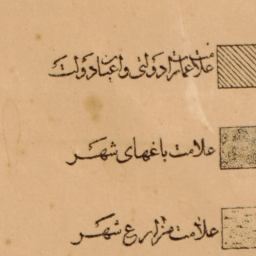 علامت عمارات دولتی و اعیان دولت
علامت باغهای شهر
علامت مزارع شهر